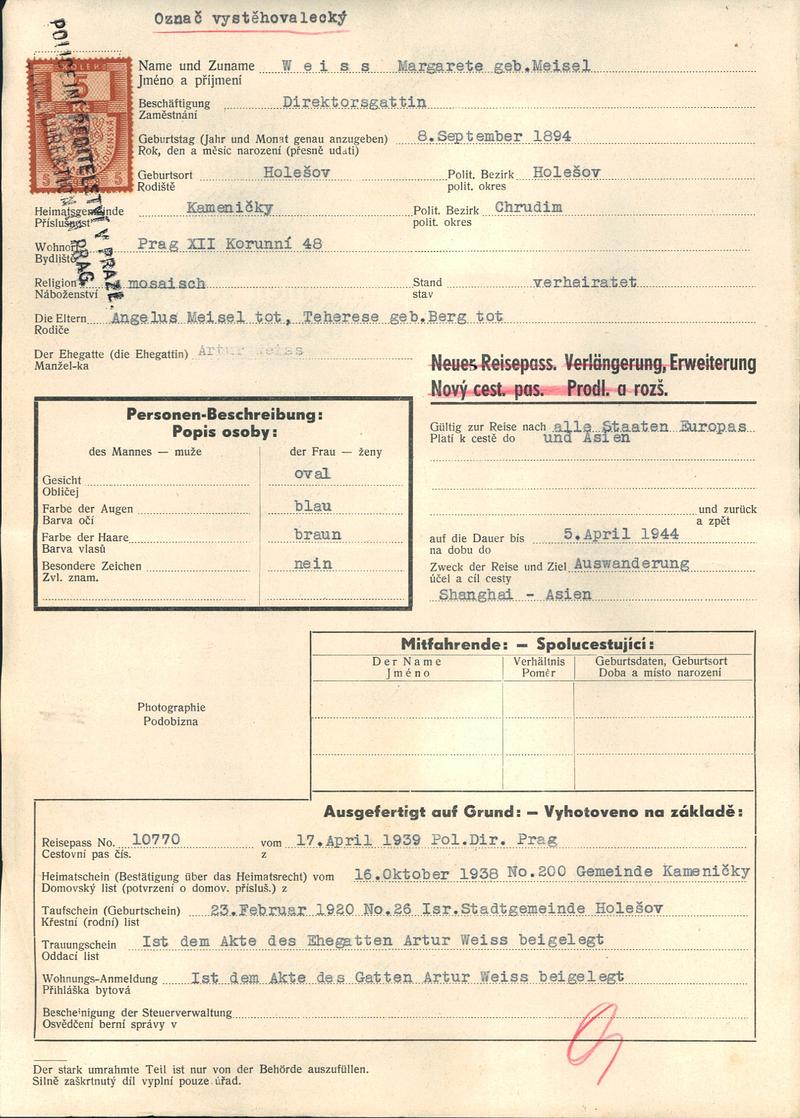 Označ vystěhovalecký
Name und Zuname W e i s s Margarete geb.Meisel
Jméno a příjmení
Beschäftigung Direktorsgattin
Zaměstnání
Geburtstag (Jahr und Monat genau anzugeben) 8.September 1894
Rok, den a měsíc narození (přesně udati)
Geburtsort Holešov Polit. Bezirk Holešov
Rodiště polit. okres
Heimatsgemeinde Kameničky Polit. Bezirk Chrudim
Příslušnost polit. okres
Wohnort Prag XII Korunní 48
Bydliště
Religion mosaisch Stand verheiratet
Náboženství stav
Die Eltern Angelus Meisel tot, Teherese geb.Berg tot
Rodiče
Der Ehegatte (die Ehegattin) Artur Weiss
Manžel-ka
POLICEJNÍ ŘEDITELSTVÍ V PRAZE.
DIREKTION PRAG.
5
Kč
5 5
Neues Reisepass. Verlängerung, Erweiterung
Nový cest. pas. Prodl. a rozš.
Personen-Beschreibung:
Popis osoby:
des Mannes — muže der Frau — ženy
Gesicht oval
Obličej
Farbe der Augen blau
Barva očí
Farbe der Haare braun
Barva vlasů
Besondere Zeichen nein
Zvl. znam.
Gültig zur Reise nach alle Staaten Europas
Platí k cestě do und Asien
und zurück
a zpět
auf die Dauer bis 5.April 1944
na dobu do
Zweck der Reise und Ziel Auswanderung
účel a cíl cesty
Shanghai - Asien
Mitfahrende: — Spolucestující:
Der Name Verhältnis Geburtsdaten, Geburtsort
Jméno Poměr Doba a místo narození
Photographie
Podobizna
Ausgefertigt auf Grund: — Vyhotoveno na základě:
Reisepass No. 10770 vom 17.April 1939 Pol.Dir. Prag
Cestovní pas čís. z
Heimatschein (Bestätigung über das Heimatsrecht) vom 16.Oktober 1938 No.200 Gemeinde Kameničky
Domovský list (potvrzení o domov. přísluš.) z
Taufschein (Geburtschein) 23.Februar 1920 No.26 Isr.Stadtgemeinde Holešov
Křestní (rodní) list
Trauungschein Ist dem Akte des Ehegatten Artur Weiss beigelegt
Oddací list
Wohnungs-Anmeldung Ist dem Akte des Gatten Artur Weiss beigelegt
Přihláška bytová
Bescheinigung der Steuerverwaltung
Osvědčení berní správy v
Der stark umrahmte Teil ist nur von der Behörde auszufüllen.
Silně zaškrtnutý díl vyplní pouze úřad.